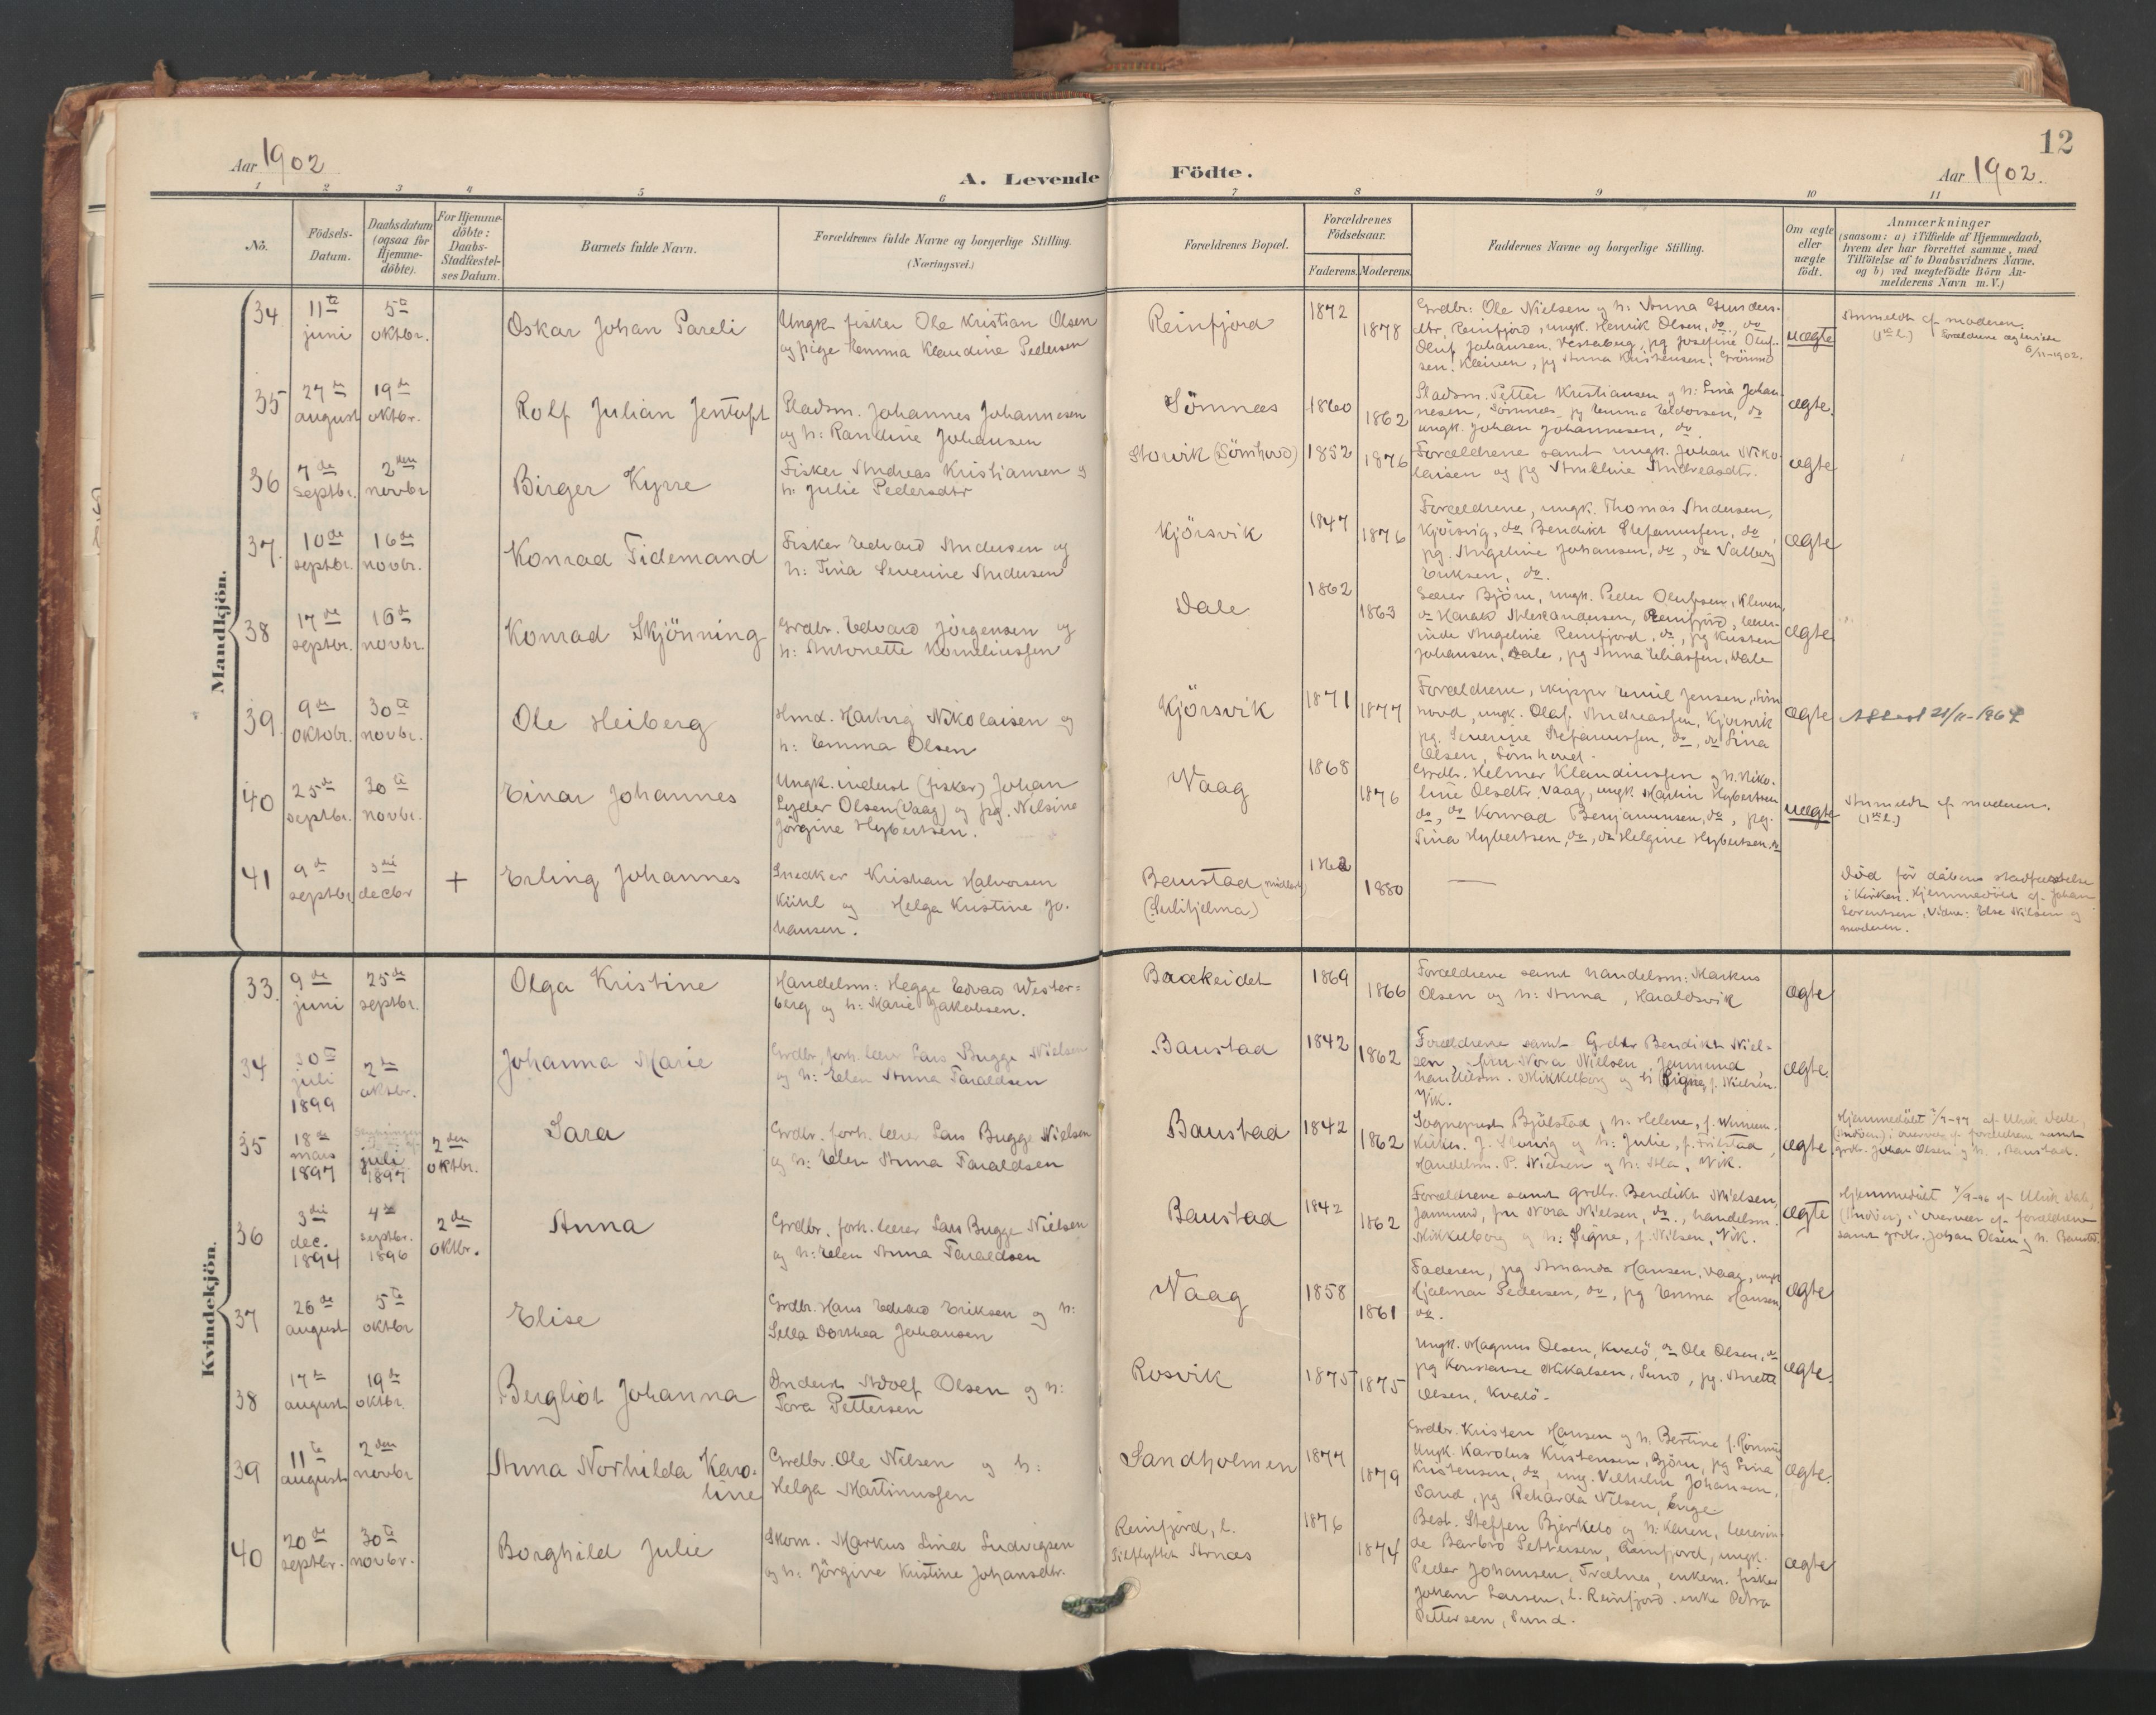 12
Aar 1902
A. Levende Födte.
Aar 1902.
1 2 3 4 5 6 7 8 9 10 11
No.
Födsels-
Datum.
Daabsdatum
(ogsaa for
Hjemme-
döbte).
For Hjemme-
döbte:
Daabs-
Stadfæstel-
ses Datum.
Barnets fulde Navn.
Forældrenes fulde Navne og borgerlige Stilling.
(Næringsvei.)
Forældrenes Bopæl.
Forældrenes
Födselsaar.
Faderens. Moderens.
Faddernes Navne og borgerlige Stilling.
Om ægte
eller
uægte
födt.
Anmærkninger
(saasom: a) i Tilfælde af Hjemmedaab,
hvem der har forrettet samme, med
Tilföielse af to Daabsvidners Navne.
og b) ved uægtefödte Börn An-
melderens Navn m. V.)
Mandkjön.
34
11te
juni
5te
oktbr.
Oskar Johan Pareli
Ungk. fisker Ole Kristian Olsen
og pige Emma Klaudine Pedersen
Reinfjord
1872
1878
Grdbr. Ole Nielsen og h: Anna Gunders-
dtr, Reinfjord, ungk. Henrik Olsen, do, do
Oluf Johansen, pg Josefine Oluf-
sen, Kleiven, pg Anna Kristensen,
uægte
Anmeldt af moderen.
(1ste l.) Forældrene ægteviede
6/11-1902.
35
27de
august
19de
oktbr.
Rolf Julian Jentoft
Pladsm. Johannes Johannesen
og h: Randine Johansen
Sömnes
1860
1862
Pladsm. Petter Kristiansen og h: Lina Johan-
nesen, Sömnes, pg Emma do
ungk. Johan Johannesen, do.
ægte.
36
7de
septbr.
2den
novbr
Birger Kyrre
Fisker Andreas Kristiansen og
h: Julie Pedersdtr
Storvik (Sörnhovd)
1852
1876
Forældrene samt ungk. Johan Niko-
laisen og pg Andreasdtr.
ægte
37.
10de
septbr.
16de
novbr.
Konrad Tidemand
Fisker Edvard Andersen og
h: Tina Severine Andersen
Kjörsvik
1847
1876
Forældrene, ungk. Thomas Andersen,
Kjörsvig, do Bendikt Stefanussen, do,
pg. Angeline Johansen, do, do Valborg
Eriksen, do.
ægte
38
17de
septbr.
16de
novbr.
Konrad Skjönning
Grdbr. Edvard Jörgensen og
h: Antonette Korneliussen
Dale
1862
1863
Lærer Björn, ungk. Peder Olufsen, Kleven,
do Harald Aleksandersen, Reinfjord, lærer-
inde Angeline Reinfjord, do, pg Kristen
Johansen, Dale, pg Anna Eliassen, Dale
ægte
39
9de
oktobr.
30te
novbr.
Ole Heiberg
Hmd. Hartvig Nikolaisen og
h: Emma Olsen
Kjörsvik
1871
1877
Forældrene, skipper Emil Jensen, Sörn
hovd, ungk. Olaf Andreassen, Kjörsvik
pg. Severine Stefanussen, do, do Lina
Olsen, Sörnhovd.
ægte
Attest 21/11-1967
40
25de
septbr.
30te
novbr.
Einar Johannes
Ungk. inderst (fisker) Johan
Lyder Olsen (Vaag) og pg. Nilsine
Jörgine Hybertsen.
Vaag
1868
1876
Grdbr. Helmer Klaudiussen og h. Niko-
line Olsdtr. Vaag, ungk. Martin Hybertsen
do, do Konrad Benjaminsen, do, pg.
Tina Hybertsen, do, do Helgine Hybertsen, do
uægte
Anmeldt af moderen.
(1ste l.)
41
9de
septbr
3die
decbr
+
Erling Johannes
Snedker Kristian Halvorsen
Kühl og Helga Kristine Jo-
hansen.
Baustad (midlert.)
(Sulitjelma)
1862
1880
—
Död för dåbens stadfæstelse
i kirken. Hjemmedöbt af Johan
Sörentsen, Vidne: Else Nilsen og
moderen.
Kvindekjön.
33.
9de
juni
25de
septbr.
Olga Kristine
Handelsm: Hegge Edvard Wester-
berg og h: Marie Jakobsen.
Baakeidet
1869
1866
Forældrene samt handelsm: Markus
Olsen og h: Anna, Haraldsvik
ægte
34
30te
juli
1899
2den
oktbr.
Johanna Marie
Grdbr, forh. lærer Lars Bugge Nielsen
og h: Elen Anna Taraldsen
Baustad
1842
1862
Forældrene samt Grdbr Bendikt Niel-
sen, fru Nora Nielsen, Jammund,
handelsm. Mikkelborg og h: Signe, f. Nielsen.
Vik.
ægte.
35
18de
mars
1897
juli
1897
2den
oktbr.
Sara
Grdbr. forh. lærer Lars Bugge Nielsen
og h: Elen Anna Taraldsen
Baustad
1842
1862
Sogneprest Bjölstad og h: Helene, f.
h: Julie, f.
Handelsm. P. Nielsen og h: Vik.
ægte
Hjemmedöbt af Ulrik Dale,
i overvær af forældrene samt
grdbr. Johan Olsen og h., Baustad.
36
3die
dec.
1894
4de
septbr.
1896
2den
oktbr.
Anna
Grdbr. forh. lærer Lars Bugge Nielsen
og h: Elen Anna Taraldsen
Baustad
1842
1862
Forældrene samt grdbr. Bendikt Nielsen,
Jammund, fru Nora Nielsen, do, handelsm.
Mikkelborg og h: Signe, f. Nilsen, Vik.
ægte
Hjemmedöbt 4/9-96 af Ulrik Dale,
i overvær af forældrene
samt grdbr. Johan Olsen og h. Baustd.
37
26de
august
5te
oktbr
Elise
Grdbr. Hans Edvard Eriksen og h:
Sella Dorthea Johansen
Vaag
1858
1861
Faderen, pg Amanda Hansen, Vaag, ungk
Hjalmar Pedersen, do, pg Emma Hansen,
do.
ægte
38
17de
august
19de
oktbr.
Bergliot Johanna
Inderst Adolf Olsen og h:
Tora Pettersen
Rosvik
1875
1875
Ungk. Magnus Olsen, Kvalö, do Ole Olsen, do
pg Konstanse Mikalsen, Sund, pg. Anette
Olsen, Kvalö.
ægte.
39
11te
august
2den
novbr
Anna Norhilda Karo-
line
Grdbr. Ole Nilsen og h:
Helga Martinussen
Sandholmen
1877
1879
Grdbr. Kristen Hansen og h: Bertine f. Rönning
Ungk. Karolus Kristensen, Björn, pg Lina
Kristensen, do, ung. Vilhelm Johansen,
Sand, pg Rekarda Nilsen, Enge
ægte.
40
20de
septbr.
30te
novbr.
Borghild Julie
Skom. Markus Lind Ludvigsen
og h: Jörgine Kristine Johansdtr.
Reinfjord, l.
Tilflyttet Arnæs
1876
1874
Best. Steffen Bjerkelo og h: Karen, lærerin-
de Barbro Pettersen, Reinfjord, ungk.
Peder Johansen, Trælnes, enkem. fisker
Johan Larsen, l. Reinfjord, enke Petra
Pettersen, Sund.
ægte